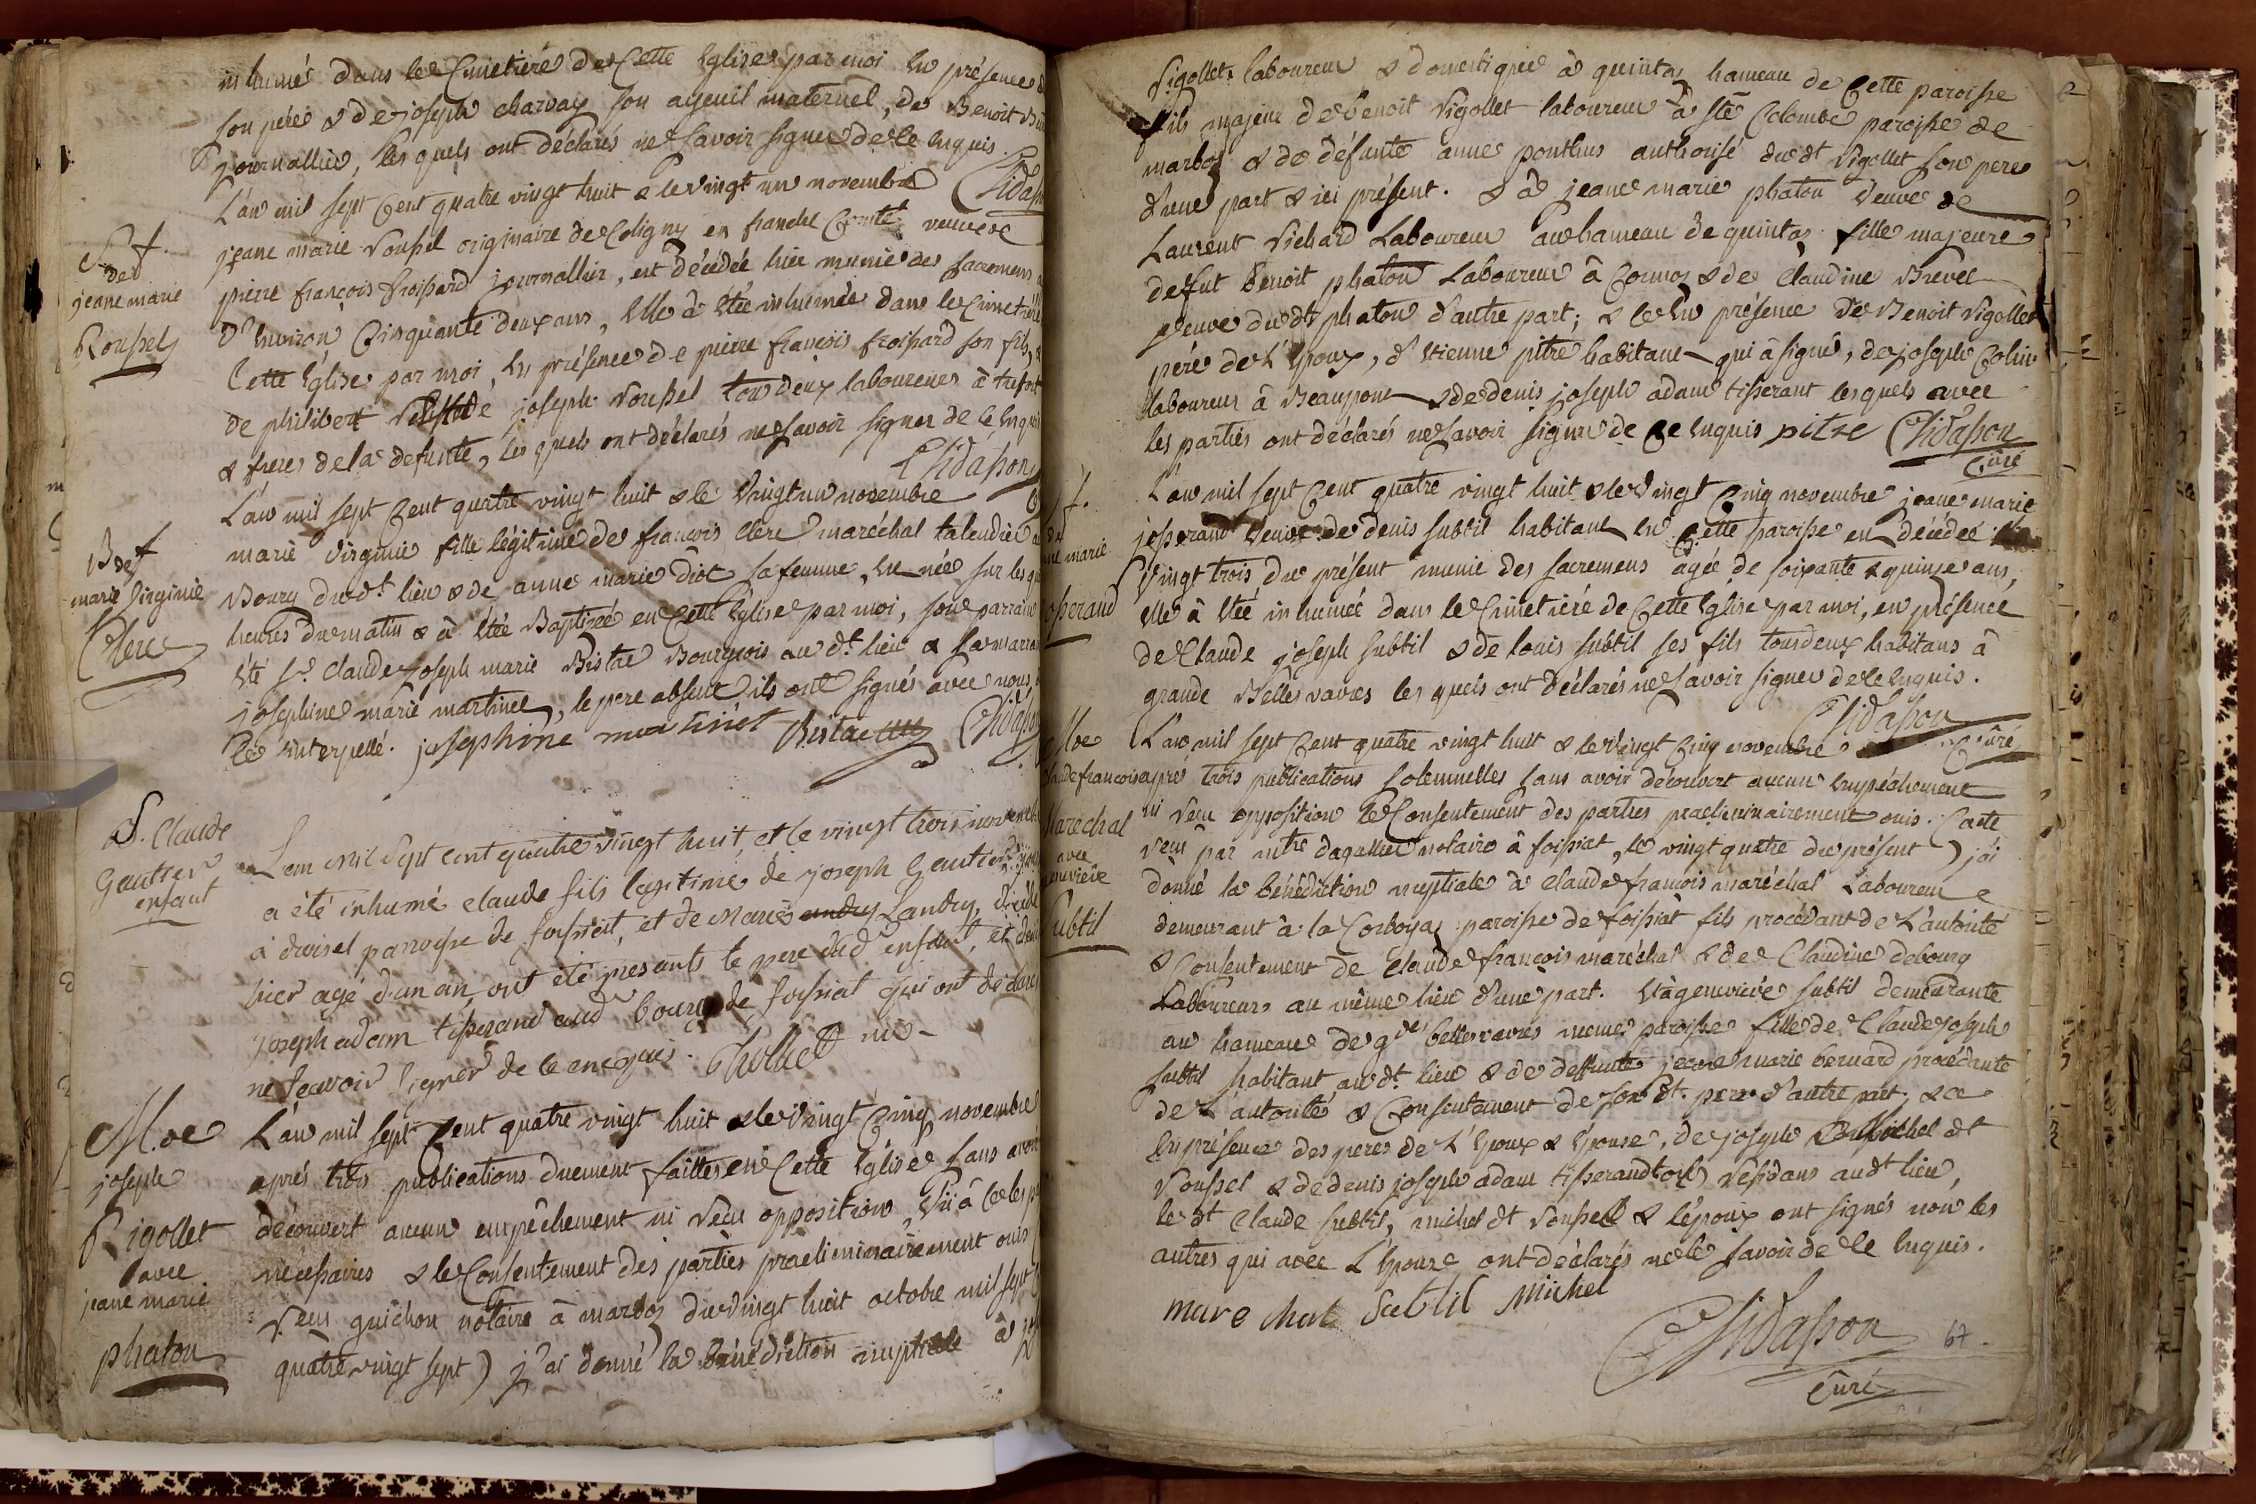 inhumé dans le Cimetiére de Cette Eglise par moi En présence
son pére & de joseph charvay son ayeuil maternel, de Benoit
journallier, les quels ont déclarés ne savoir signer de ce enquis.
Chidasson
S. f.
de
jeane marie
Roussel
L'an mil sept Cent quatre vingt huit & le vingt un novembre
jeane marie Roussel originaire de Coligny en franche Comté veuve de
pierre françois froissard journallier, est décédée hier munie des sacremens
d'Environ Cinquante deux ans, Elle à êtée inhumée dans le Cimetiére
Cette Eglise par moi, En présence de pierre françois froissard son fils,
de philibert & joseph Roussel tous deux laboureurs à trefort
& freres de la defunte, les quels ont déclarés ne savoir signer de ce Enquis
Chidasson
B de f
marie Virginie
Clerc
L'an mil sept Cent quatre vingt huit & le vingt un novembre
marie Virginie fille légitime de françois Clerc maréchal talendier
Bourg dud.t lieu & de anne marie Diot sa femme, Est née sur les
heures du matin & à êtée Baptizée en Cette Eglise par moi, son parrain
été s.r Claude joseph marie Bistac Bourgeois au d.t lieu & sa marraine
josephine marie martinet, le pere absent ils ont signés avec nous
de ce interpellé. josephine martinet Bistac Chidasson
S. Claude
Gautier
enfant
L'an mil sept cent quatre vingt huit, et le vingt trois novembre
a été inhumé claude fils legitime de joseph Gautier
à droisel parroisse de foissiat, et de Marie Landry, décédé
hier agé d'un an, ont été presants le pere dud. enfant, et denis
joseph adam tisserand aud. bourg de foissiat qui ont déclaré
ne sçavoir signer de ce anequis. Chollet vic
M. de
joseph
Rigollet
avec
jeane marie
phaton
L'an mil sept Cent quatre vingt huit & le vingt Cinq novembre
aprés trois publications duement faittes en Cette Eglise sans avoir
découvert aucun empêchement ni recu opposition, Vû à Ce les
necessaires & le Consentement des parties praeliminairement ouis
recu guichon notaire à marboz du vingt huit octobre mil sept
quatre vingt sept) j'ai donné la bénédiction nuptiale à
Rigollet laboureur & domestique à quintas hameau de Cette paroisse
fils majeur de benoit Rigollet laboureur à ste Colombe paroisse de
marboz & de défunte anne ponthus authorisé dud.t Rigollet son pere
d'une part & ici présent. & à jeane marie phaton Veuve de
Laurent Vichard Laboureur au hameau de quintas fille majeure
de fut benoit phaton Laboureur à Cormoz & de Claudine Brevet
veuve dud.t phaton d'autre part; & ce En présence de Benoit Rigollet
père de L'Epoux, d'Etienne pitre habitant qui à signé, de joseph Colin
laboureur à Beaupont & de denis joseph adam tisserant lesquels avec
les parties ont déclarés ne savoir signer de ce Enquis pitre Chidasson
Curé
S. f.
de
jeane marie
josserand
L'an mil sept Cent quatre vingt huit & le vingt Cinq novembre jeane marie
josserand Veuve de denis subtil habitant En Cette paroisse est décédée le
Vingt trois du présent munie des sacremens agée de soixante & quinze ans,
Elle à êtée inhumée dans le Cimetiére de Cette Eglise par moi, en présence
de Claude joseph subtil & de louis subtil ses fils tous deux habitans à
grande Bellesvavres les quels ont déclarés ne savoir signer de ce Enquis.
Chidasson
Curé
M de
Claude françois
Maréchal
avec
Genevieve
Subtil
L'an mil sept Cent quatre vingt huit & le vingt Cinq novembre
aprés trois publications solemnelles sans avoir découvert aucun Empéchement
ni recu opposition le Consentement des parties praeliminairement ouis. Cacte
recu par mtre dagallier notaire à foissiat, le vingt quatre du présent) j'ai
donné la bénédiction nuptiale à Claude françois maréchal Laboureur
demeurant à la Corboya paroisse de foissiat fils procédant de L'autorité
& Consentement de Claude françois maréchal & de Claudine debourg
Laboureurs au même lieu d'une part. Et à genevieve subtil demeurante
au hameau de gde bellesvavres meme paroisse fille de Claude joseph
subtil habitant aud.t lieu & de deffunte jeane marie bernard procédante
de L'autorité & Consentement de son d.t pere d'autre part, & ce
En présence des peres de L'Epoux & Epouse, de joseph Michel dt
Roussel & de denis joseph adam tisserand tous résidans aud.t lieu,
le d.t Claude subtil, michel dt Roussel & l'époux ont signés non les
autres qui avec L'Epouse ont déclarés ne le savoir de ce Enquis.
marechal Subtil Michel
Chidasson
Curé
67